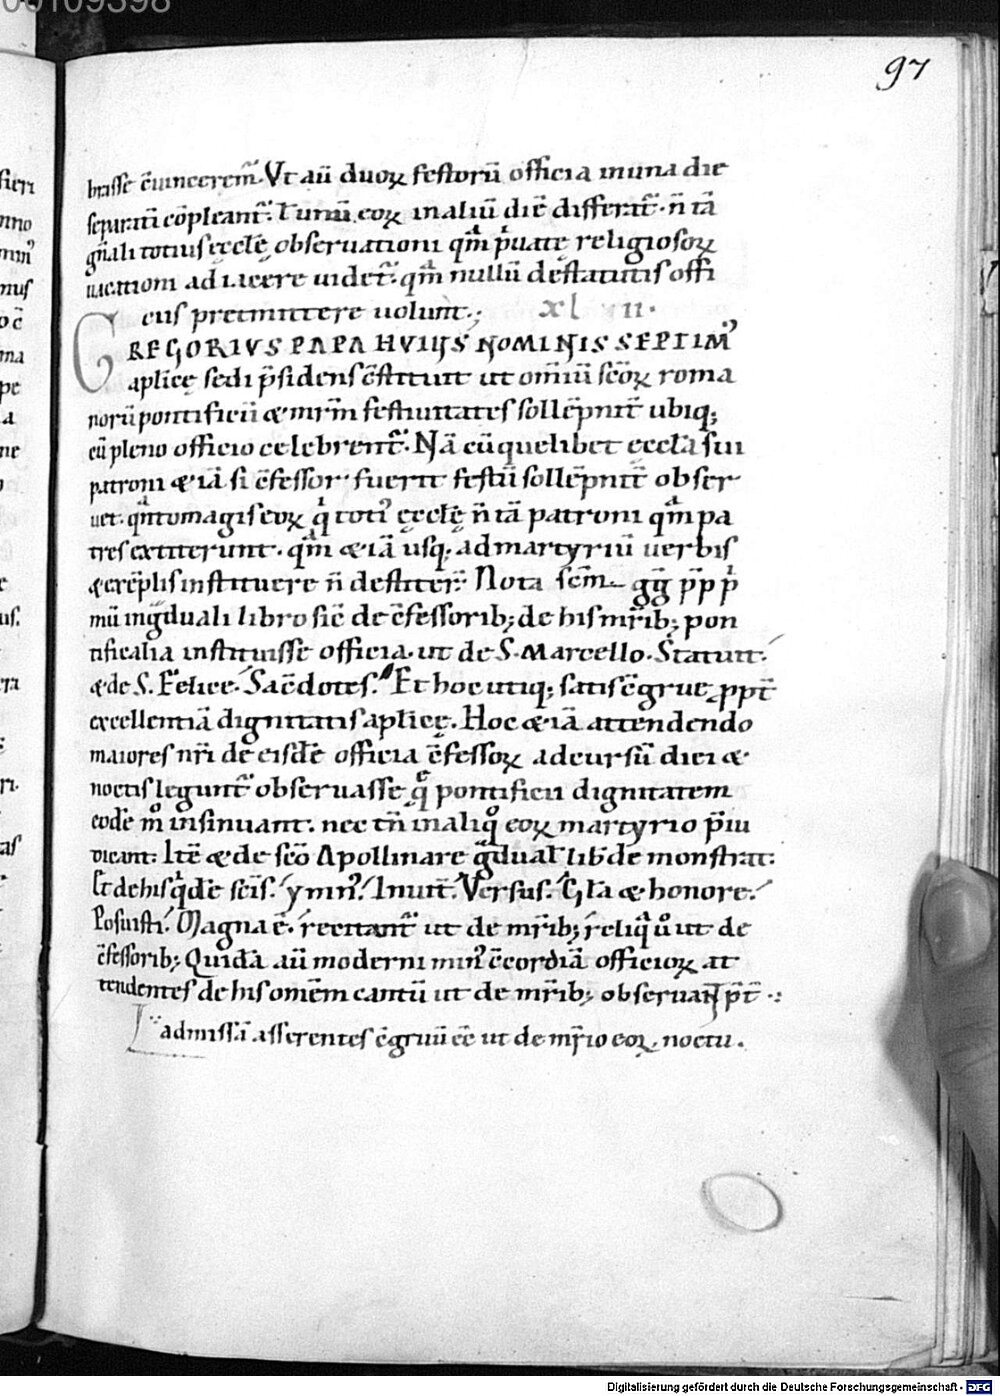 97
brasse c̄uincerem̄. Vt aū duoꝝ festorū officia in una die
separati cōpleant᷑. ł unū eoꝝ in aliū diē differat᷑. n̄ tā
gn̄ali totius ęcclę̄ observationi qm̄ p̱uatę religiosoꝝ
uacationi adiacere uidet᷑. qm̄ nullū de statutis offi
ciis pretmittere uolunt.; xl vii.
GREGORIVS PAPA HVIUS NOMINIS SEPTIMꝰ
aplicę sedi p̄sidens c̄stituit ut omniū sc̄oꝝ roma
norū pontificū & mr̄m festiuitates sollēpnit᷑ ubiq;
cū pleno officio celebrent᷑. Nā cū quelibet ęccła sui
patroni & iā si c̄fessor fuerit festū sollēpnit᷑ obser
uet. qntomagis eoꝝ q̇ totiꝰ ęcclę̄ n̄ tā patroni qm̄ pa
tres extiterunt. qm̄ & iā usq; ad martyriū uerbis
& exēplis instituere n̄ destiter̄. Nota sc̄m gg̅ pp̅ ṗ
mū in gͣduali libro sic̄ de c̄fessorib; de his mr̄ib; pon
tificalia instituisse officia. ut de S. Marcello. Statuit.
& de S. Felice. Sac̄dotes. Et hoc utiq; satis c̄grue ꝓpt᷑
excellentiā dignitatis aplicę. Hoc & iā attendendo
maiores nr̄i de eisdē officia c̄fessoꝝ ad cursū diei &
noctis legunt᷑ obseruasse q̄ pontificii dignitatem
eodē mͦ insinuant. nec tn̄ in aliqͦ eoꝝ martyrio p̄iu
dicant: Itē & de sc̄o Apollinare gͣdual̄ lib̄ demonstrat:
Et de his qͥdē sc̄is. ymnꝰ. Inuit̄. Versus. Gła & honore.
Posuisti. Magna ē. recitant᷑ ut de mr̄ib; reliqͣ uͦ ut de
c̄fessorib; Quidā aū moderni minꝰ c̄cordiā officioꝝ at
tendentes de his omēm cantū ut de mr̄ib; obseruant p̄t
admissā asserentes c̄gruū eē ut de mr̄io eoꝝ noctu.
Digitalisierung gefördert durch die Deutsche Forschungsgemeinschaft - DFG